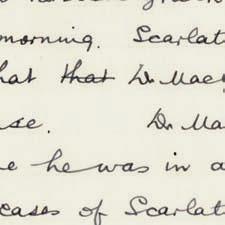 morning. Scarlat
hat that Dr. Mac
se. Dr. Ma
e he was in a
cases of Scarlat